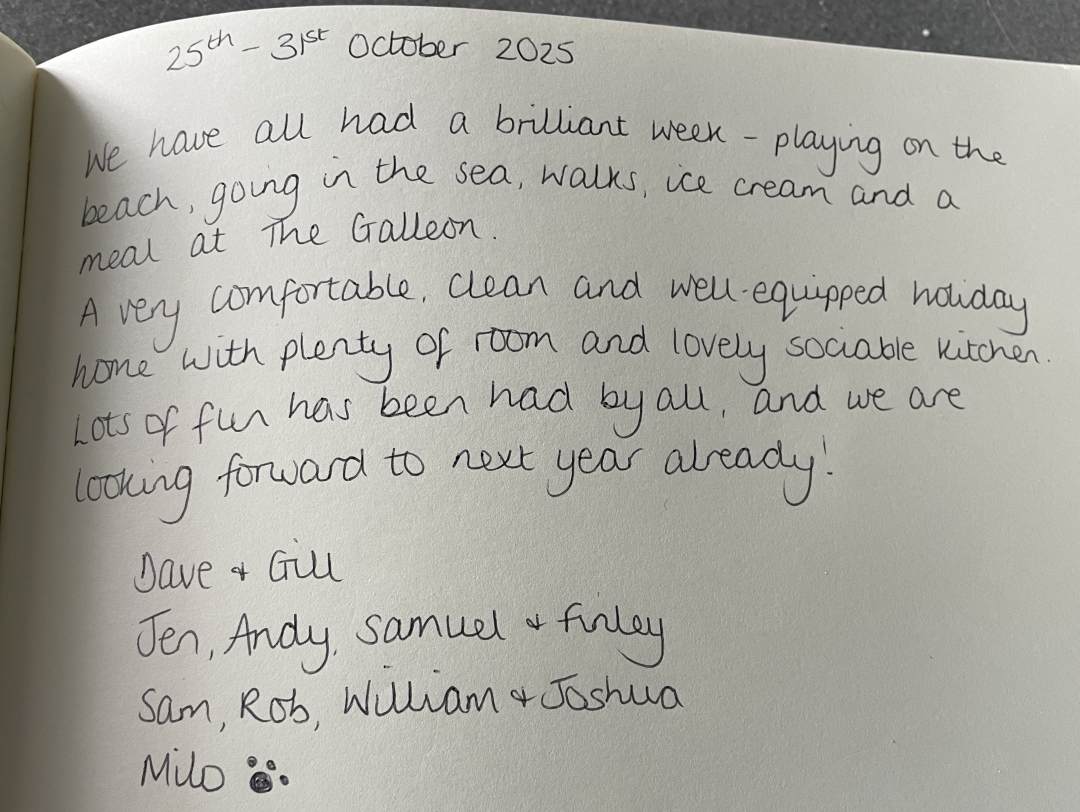 25th - 31st October 2025
We have all had a brilliant week - playing on the
beach, going in the sea, walks, ice cream and a
meal at The Galleon.
A very comfortable, clean and well-equipped holiday
home with plenty of room and lovely sociable kitchen.
Lots of fun has been had by all, and we are
looking forward to next year already!
Dave & Gill
Jen, Andy, Samuel & Finley
Sam, Rob, William & Joshua
Milo